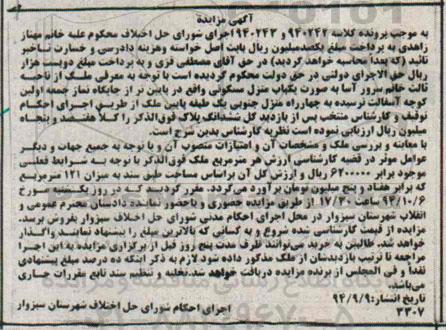 آگهی مزایده
به موجب پرونده کلاسه ۹۴۰۲۴۲ و ۹۴۰۲۴۳ اجرای شورای حل اختلاف محکوم علیه خانم مهناز
زاهدی به پرداخت مبلغ یکصدمیلیون ریال بابت اصل خواسته وهزینه دادرسی و خسارت تاخیر
تائید (که بعدا محاسبه خواهد گردید) در حق آقای مصطفی قزی و به پرداخت مبلغ دویست هزار
ریال حق الاجرای دولتی در حق دولت محکوم گردیده است با توجه به معرفی ملک از ناحیه
ثالث خانم نیرور آسا به صورت یکباب منزل مسکونی واقع در پایین تر از جایگاه نماز جمعه اولین
کوچه آسفالت نرسیده به چهارراه منزل جنوبی یک طبقه پایین ملک از طریق اجرای احکام
توقیف و کارشناس منتخب پس از بازدید کل ششدانگ پلاک فوق الذکر را کلا هفتصد و پنجاه
میلیون ریال ارزیابی نموده است نظریه کارشناس بدین شرح است.
با معاینه و بررسی ملک و مشخصات آن و امتیازات منصوب آن و با توجه به جمیع جهات و دیگر
عوامل موثر در قضیه کارشناسی ارزش هر مترمربع ملک فوق الذکر با توجه به شرایط فعلی
موجود برابر ۶۲۰۰۰۰۰ ریال و ارزش کل آن براساس مساحت طبق سند به میزان ۱۲۱ مترمربع
که برابر هفتاد و پنج میلیون تومان برآورد می‌گردد. مقرر گردید که در روز یکشنبه مورخ
۹۴/۱۰/۶ ساعت ۱۷/۳۰ از طریق مزایده حضوری و باحضور نماینده دادستان محترم عمومی و
انقلاب شهرستان سبزوار در محل اجرای احکام مدنی شورای حل اختلاف سبزوار بفروش برسد.
مزایده از قیمت کارشناسی شده شروع و به کسانی که بالاترین مبلغ را پیشنهاد نمایند واگذار
خواهد شد. طالبین به خرید می‌توانند ظرف مدت پنج روز قبل از برگزاری مزایده به این اجرا
مراجعه تا ترتیب بازدیدشان از ملک مذکور داده شود لازم به ذکر اینکه ده درصد مبلغ پیشنهادی
نقدا و فی المجلس از برنده مزایده دریافت خواهد شد. تخلیه و تنظیم سند تابع مقررات جاری
می‌باشد.
تاریخ انتشار: ۹۴/۹/۹
۳۳۰۷ اجرای احکام شورای حل اختلاف شهرستان سبزوار